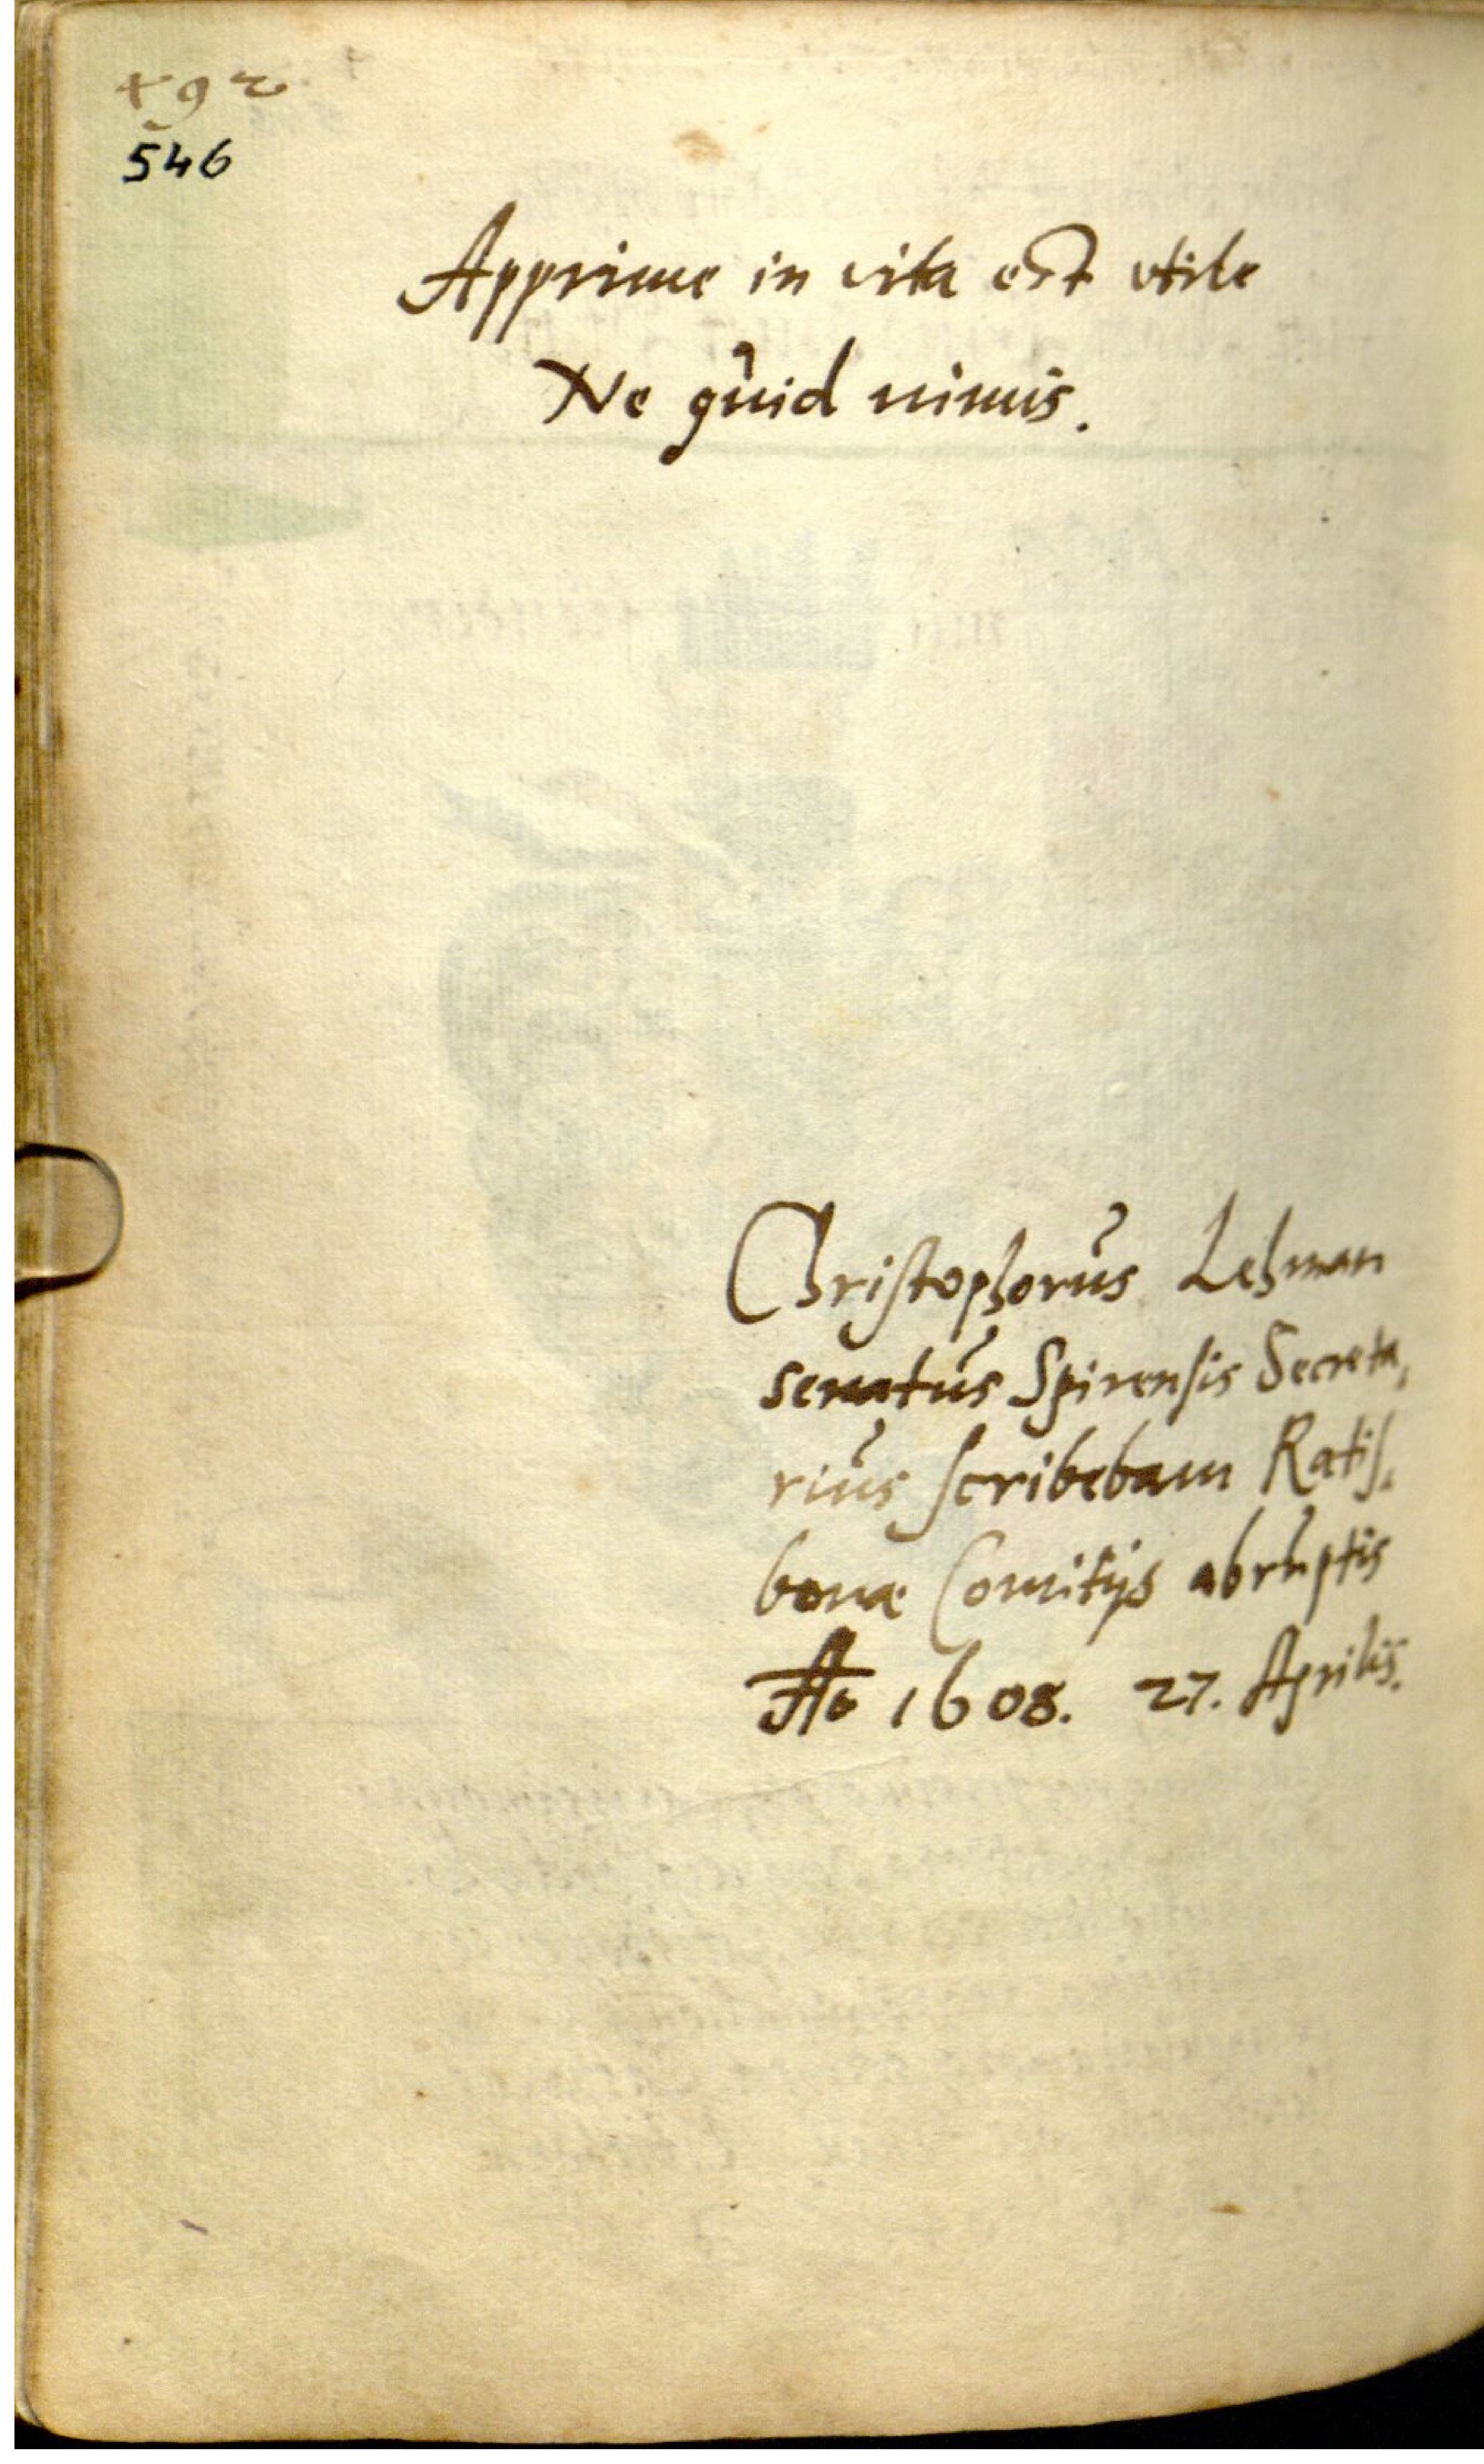 546
Apprime in vita est vtile
Ne quid nimis.
Christophorus Lehman
senatus Spirensis Secreta,
rius scribebam Ratis,
bonæ Comitijs abruptis
Ao 1608. 27. Aprilis.